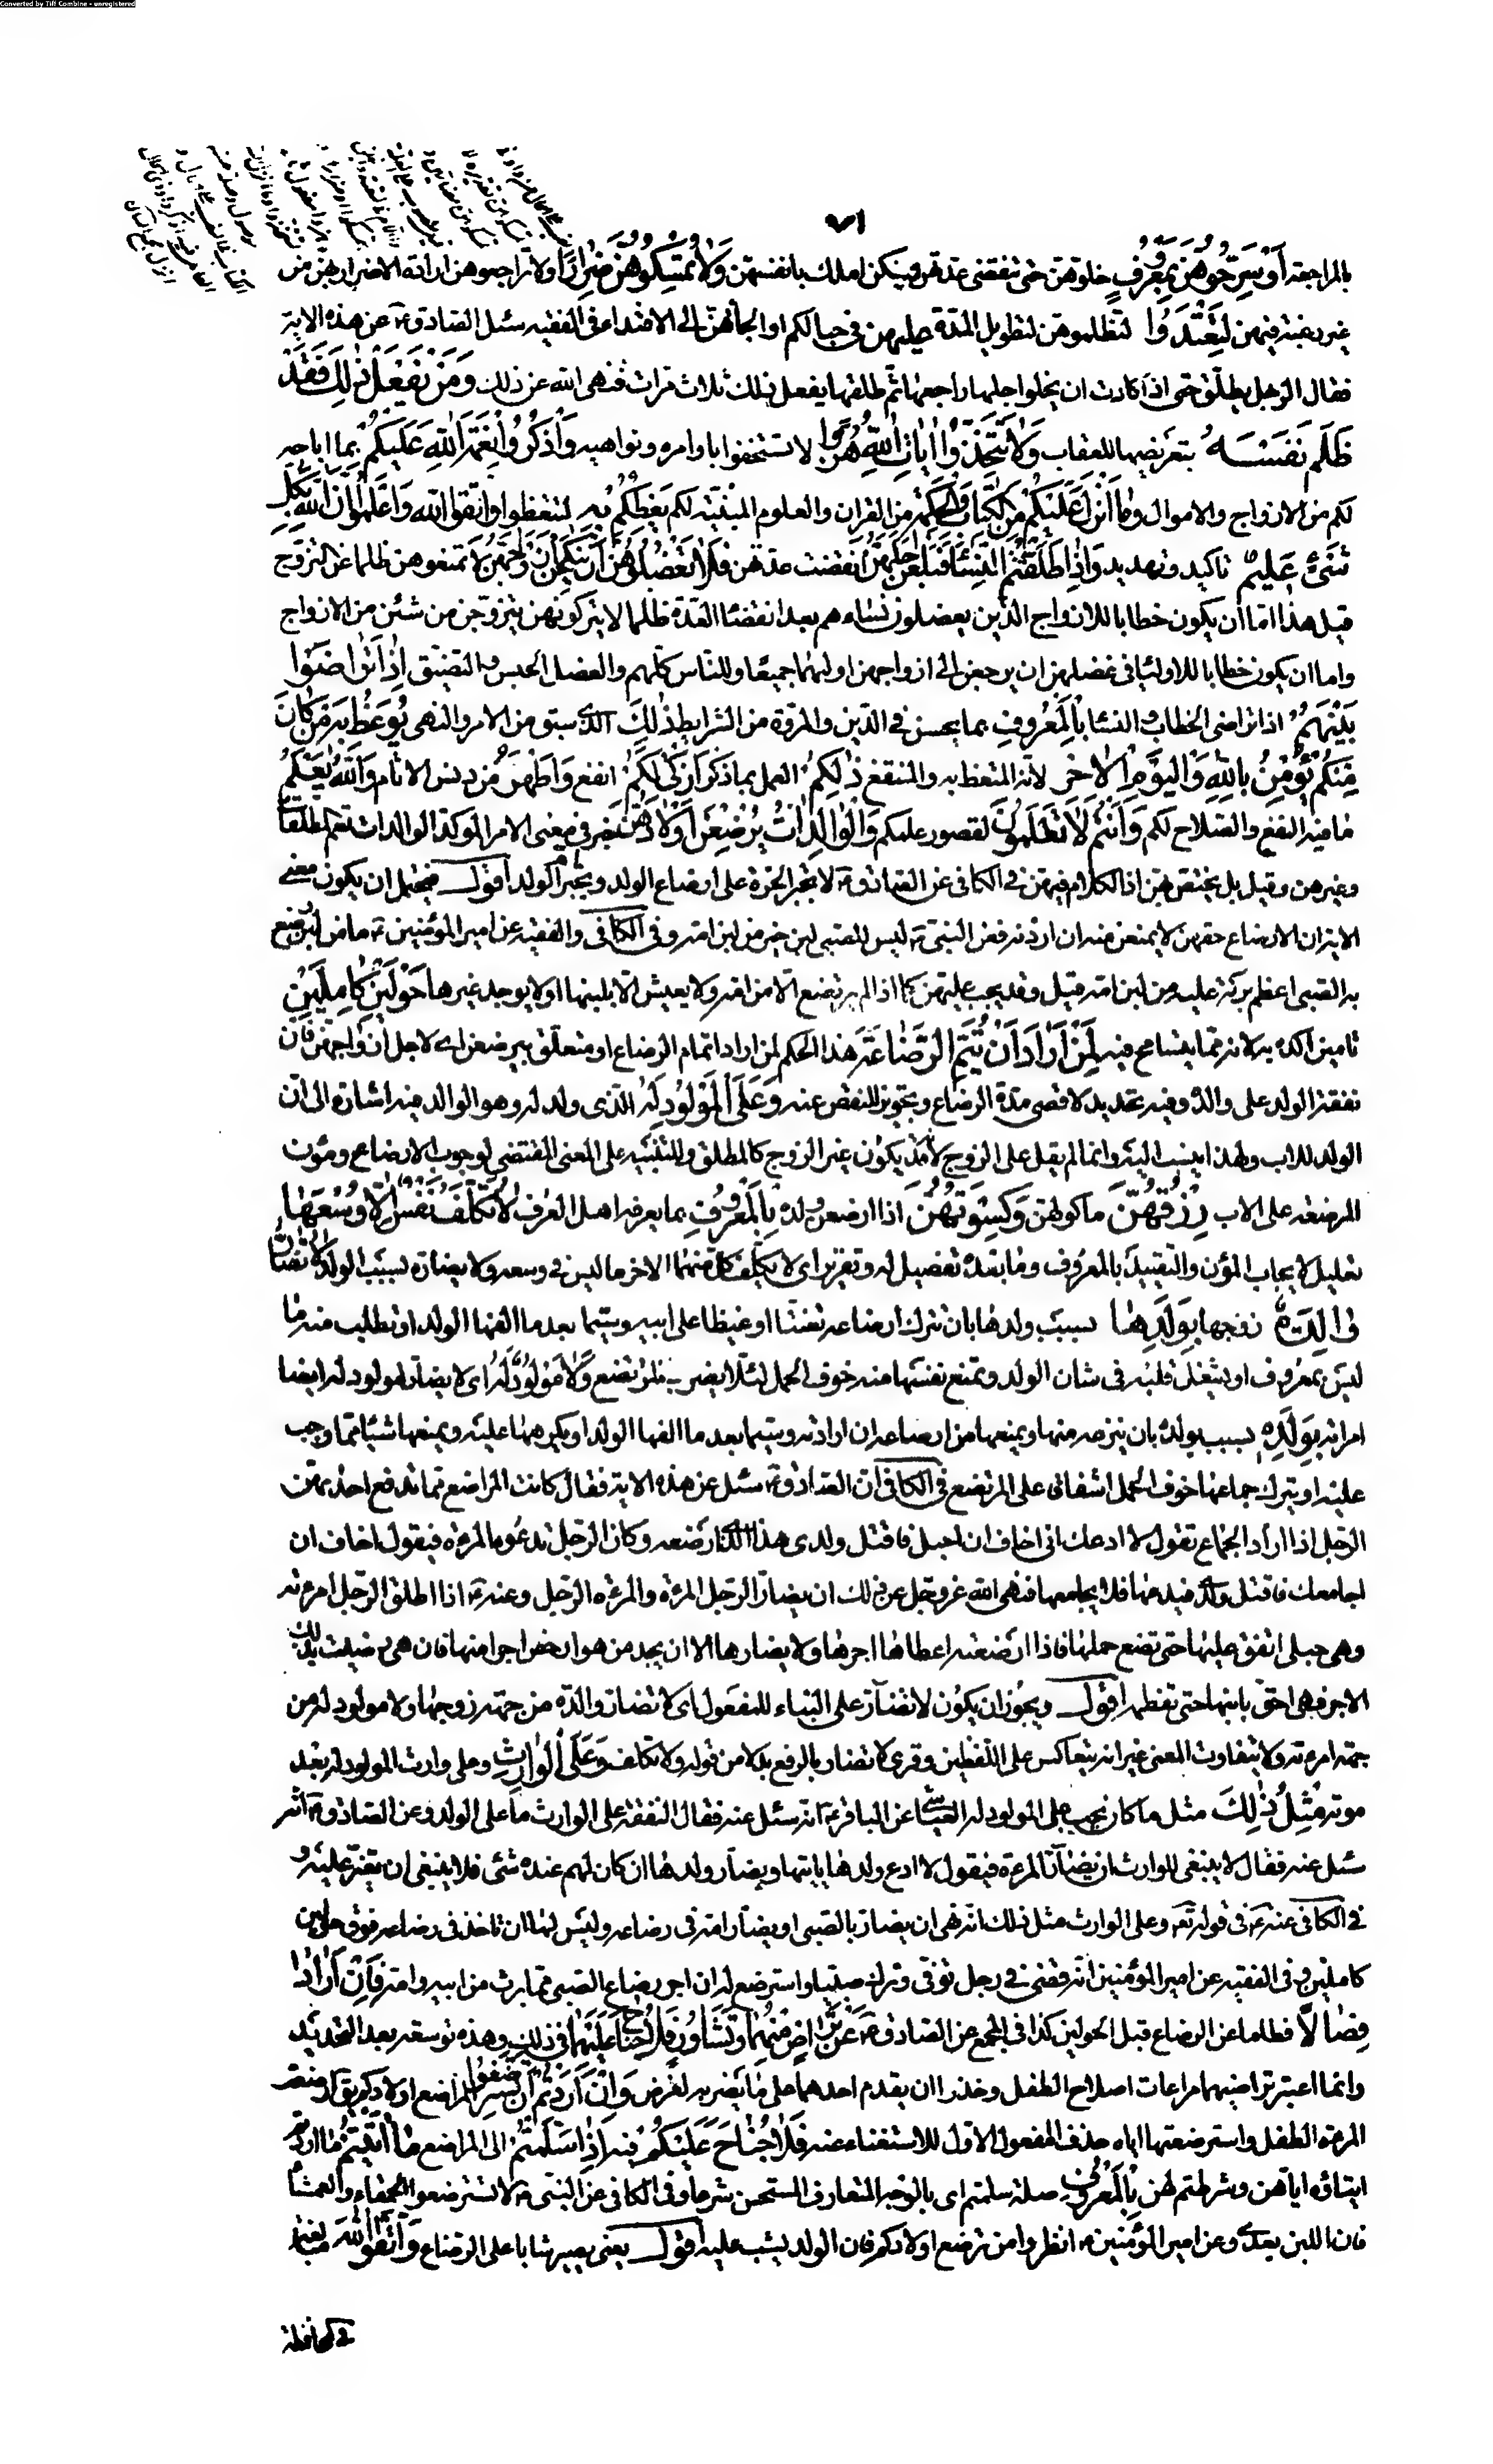 Converted by Tiff Combine - unregistered
٧١
بالمراجعة أَوْ سَرِّحُوهُنَّ بِمَعْرُوفٍ خلوهن حتى تنقضي عدتهن فيكن املك بانفسهن وَلَا تُمْسِكُوهُنَّ ضِرَارًا ولا تراجعوهن ارادة الاضرار بهن من
غير رغبة فيهن لِتَعْتَدُوا لتظلموهن لتطويل المدة عليهن في حبالكم او الجائهن الى الافتداء في الفقيه سئل الصادق ع عن هذه الاية
فقال الرجل يطلق حتى اذا كادت ان يخلو اجلها راجعها ثم طلقها يفعل ذلك ثلاث مرات فنهى الله عن ذلك وَمَنْ يَفْعَلْ ذَٰلِكَ فَقَدْ
ظَلَمَ نَفْسَهُ بتعريضها للعقاب وَلَا تَتَّخِذُوا آيَاتِ اللهِ هُزُوًا لا تستخفوا باوامره ونواهيه وَاذْكُرُوا نِعْمَةَ اللهِ عَلَيْكُمْ بما اباحه
لكم من الازواج والاموال وَمَا أَنْزَلَ عَلَيْكُمْ مِنَ الْكِتَابِ وَالْحِكْمَةِ من القران والعلوم المبينة لكم يَعِظُكُمْ بِهِ لتتعظوا وَاتَّقُوا اللهَ وَاعْلَمُوا أَنَّ اللهَ بِكُلِّ
شَيْءٍ عَلِيمٌ تاكيد وتهديد وَإِذَا طَلَّقْتُمُ النِّسَاءَ فَبَلَغْنَ أَجَلَهُنَّ انقضت عدتهن فَلَا تَعْضُلُوهُنَّ أَنْ يَنْكِحْنَ أَزْوَاجَهُنَّ لا تمنعوهن ظلما عن التزوج
قيل هذا اما ان يكون خطابا للازواج الذين يعضلون نساءهم بعد انقضاء العدة ظلما لا يتركونهن يتزوجن من شئن من الازواج
واما ان يكون خطابا للاولياء في عضلهن ان يرجعن الى ازواجهن او لهما جميعا وللناس كلهم والعضل الحبس والتضييق إِذَا تَرَاضَوْا
بَيْنَهُمْ اذا تراضى الخطاب والنساء بِالْمَعْرُوفِ بما يحسن في الدين والمروة من الشرايط ذَٰلِكَ الذي سبق من الامر والنهي يُوعَظُ بِهِ مَنْ كَانَ
مِنْكُمْ يُؤْمِنُ بِاللهِ وَالْيَوْمِ الْآخِرِ لانه المتعظ به والمنتفع ذَٰلِكُمْ العمل بما ذكر أَزْكَىٰ لَكُمْ انفع وَأَطْهَرُ من دنس الاثام وَاللهُ يَعْلَمُ
ما فيه النفع والصلاح لكم وَأَنْتُمْ لَا تَعْلَمُونَ لقصور علمكم وَالْوَالِدَاتُ يُرْضِعْنَ أَوْلَادَهُنَّ خبر في معنى الامر الموكد الوالدات تعم المطلقات
وغيرهن وقيل بل يختص بهن اذ الكلام فيهن في الكافي عن الصادق ع لا تجبر الحرة على ارضاع الولد ويجبر ام الولد اقول فيحتمل ان يكون معنى
الاية ان الارضاع حقهن لا يمنعن منه ان اردنه فعن النبي ص ليس للصبي لبن خير من لبن امه وفي الكافي والفقيه عن امير المؤمنين ع ما من لبن رضع
به الصبي اعظم بركة عليه من لبن امه قيل وقد يجب عليهن كما اذا لم يرتضع الا من امه ولا يعيش الا بلبنها او لا يوجد غيرها حَوْلَيْنِ كَامِلَيْنِ
تامين اكده به لانه مما يتسامح فيه لِمَنْ أَرَادَ أَنْ يُتِمَّ الرَّضَاعَةَ هذا الحكم لمن اراد اتمام الرضاع او متعلق بيرضعن اي لاجل ازواجهن فان
نفقة الولد على والده وفيه تحديد لاقصى مدة الرضاع وتجويز للنقص عنه وَعَلَى الْمَوْلُودِ لَهُ الذي ولد له وهو الوالد فيه اشارة الى ان
الولد للاب ولهذا ينسب اليه وانما لم يقل على الزوج لانه قد يكون غير الزوج كالمطلق وللتنبيه على المعنى المقتضي لوجوب الارضاع ومؤن
المرضعة على الاب رِزْقُهُنَّ ماكولهن وَكِسْوَتُهُنَّ اذا ارضعن ولده بِالْمَعْرُوفِ بما يعرفه اهل العرف لَا تُكَلَّفُ نَفْسٌ إِلَّا وُسْعَهَا
تعليل لايجاب المؤن والتقييد بالمعروف وما بعده تفصيل له وتقرير اي لا يكلف كل منهما الاخر ما ليس في وسعه ولا يضاره بسبب الولد لَا تُضَارَّ
وَالِدَةٌ زوجها بِوَلَدِهَا بسبب ولدها بان تترك ارضاعه تعنتا او غيظا على ابيه وسيما بعد ما الفها الولد او تطلب منه ما
ليس بمعروف او يشغل قلبه في شان الولد وتمنع نفسها منه خوف الحمل لئلا يضر بالمرتضع وَلَا مَوْلُودٌ لَهُ اي لا يضار المولود له ايضا
امراته بِوَلَدِهِ بسبب ولده بان ينزعه منها ويمنعها من ارضاعه ان ارادته وسيما بعد ما الفها الولد او يكرهها عليه ويمنعها شيئا مما وجب
عليه او يترك جماعها خوف الحمل اشفاقا على المرتضع في الكافي ان الصادق ع سئل عن هذه الاية فقال كانت المراضع مما تدفع احداهن
الرجل اذا اراد الجماع تقول لا ادعك اني اخاف ان احبل فاقتل ولدي هذا الذي ارضعه وكان الرجل تدعوه المرءة فيقول اخاف ان
اجامعك فاقتل ولدي فيدعها فلا يجامعها فنهى الله عز وجل عن ذلك ان يضار الرجل المرءة والمرءة الرجل وعنه ع اذا طلق الرجل امرءته
وهي حبلى انفق عليها حتى تضع حملها فاذا ارضعته اعطاها اجرها ولا يضارها الا ان يجد من هو ارخص اجرا منها فان هي رضيت بذلك
الاجر فهي احق بابنها حتى تفطمه اقول ويجوز ان يكون لا تضار على البناء للمفعول اي لا تضار والدة من جهة زوجها ولا مولود له من
جهة امرءته ولا يتفاوت المعنى غير انه يتعاكس على اللفظين وقرئ لا تضار بالرفع بدلا من قوله ولا تكلف وَعَلَى الْوَارِثِ وعلى وارث المولود له بعد
موته مِثْلُ ذَٰلِكَ مثل ما كان يجب على المولود له العياشي عن الباقر ع انه سئل عنه فقال النفقة على الوارث ما على الولد وعن الصادق ع انه
سئل عنه فقال لا ينبغي للوارث ان يضار المرءة فيقول لا ادع ولدها ياتيها ويضار ولدها ان كان لهم عنده شئ فلا ينبغي ان يقتر عليه و
في الكافي عنه ع في قوله تع وعلى الوارث مثل ذلك انه نهى ان يضار بالصبي او يضار امه في رضاعه وليس لها ان تاخذ في رضاعه فوق حولين
كاملين وفي الفقيه عن امير المؤمنين انه قضى في رجل توفى وترك صبيا واسترضع له ان اجر رضاع الصبي مما يرث من ابيه وامه فَإِنْ أَرَادَا
فِصَالًا فطاما عن الرضاع قبل الحولين كذا في المجمع عن الصادق ع عَنْ تَرَاضٍ مِنْهُمَا وَتَشَاوُرٍ فَلَا جُنَاحَ عَلَيْهِمَا في ذلك وهذه توسعة بعد التحديد
وانما اعتبر تراضيهما مراعات اصلاح الطفل وحذرا ان يقدم احدهما على ما يضر به لغرض وَإِنْ أَرَدْتُمْ أَنْ تَسْتَرْضِعُوا المراضع اولادكم يق ارضعت
المرءة الطفل واسترضعتها اياه حذف المفعول الاول للاستغناء عنه فَلَا جُنَاحَ عَلَيْكُمْ فيه إِذَا سَلَّمْتُمْ الى المراضع مَا آتَيْتُمْ ما اردتم
ايتائه اياهن وشرطتم لهن بِالْمَعْرُوفِ صلة سلمتم اي بالوجه المتعارف المستحسن شرعا وفي الكافي عن النبي ص لا تسترضعوا الحمقاء والعمشاء
فان اللبن يعدي وعن امير المؤمنين ع انظروا من ترضع اولادكم فان الولد يشب عليه اقول يعني يصير شابا على الرضاع وَاتَّقُوا اللهَ مبالغة
في المحافظة